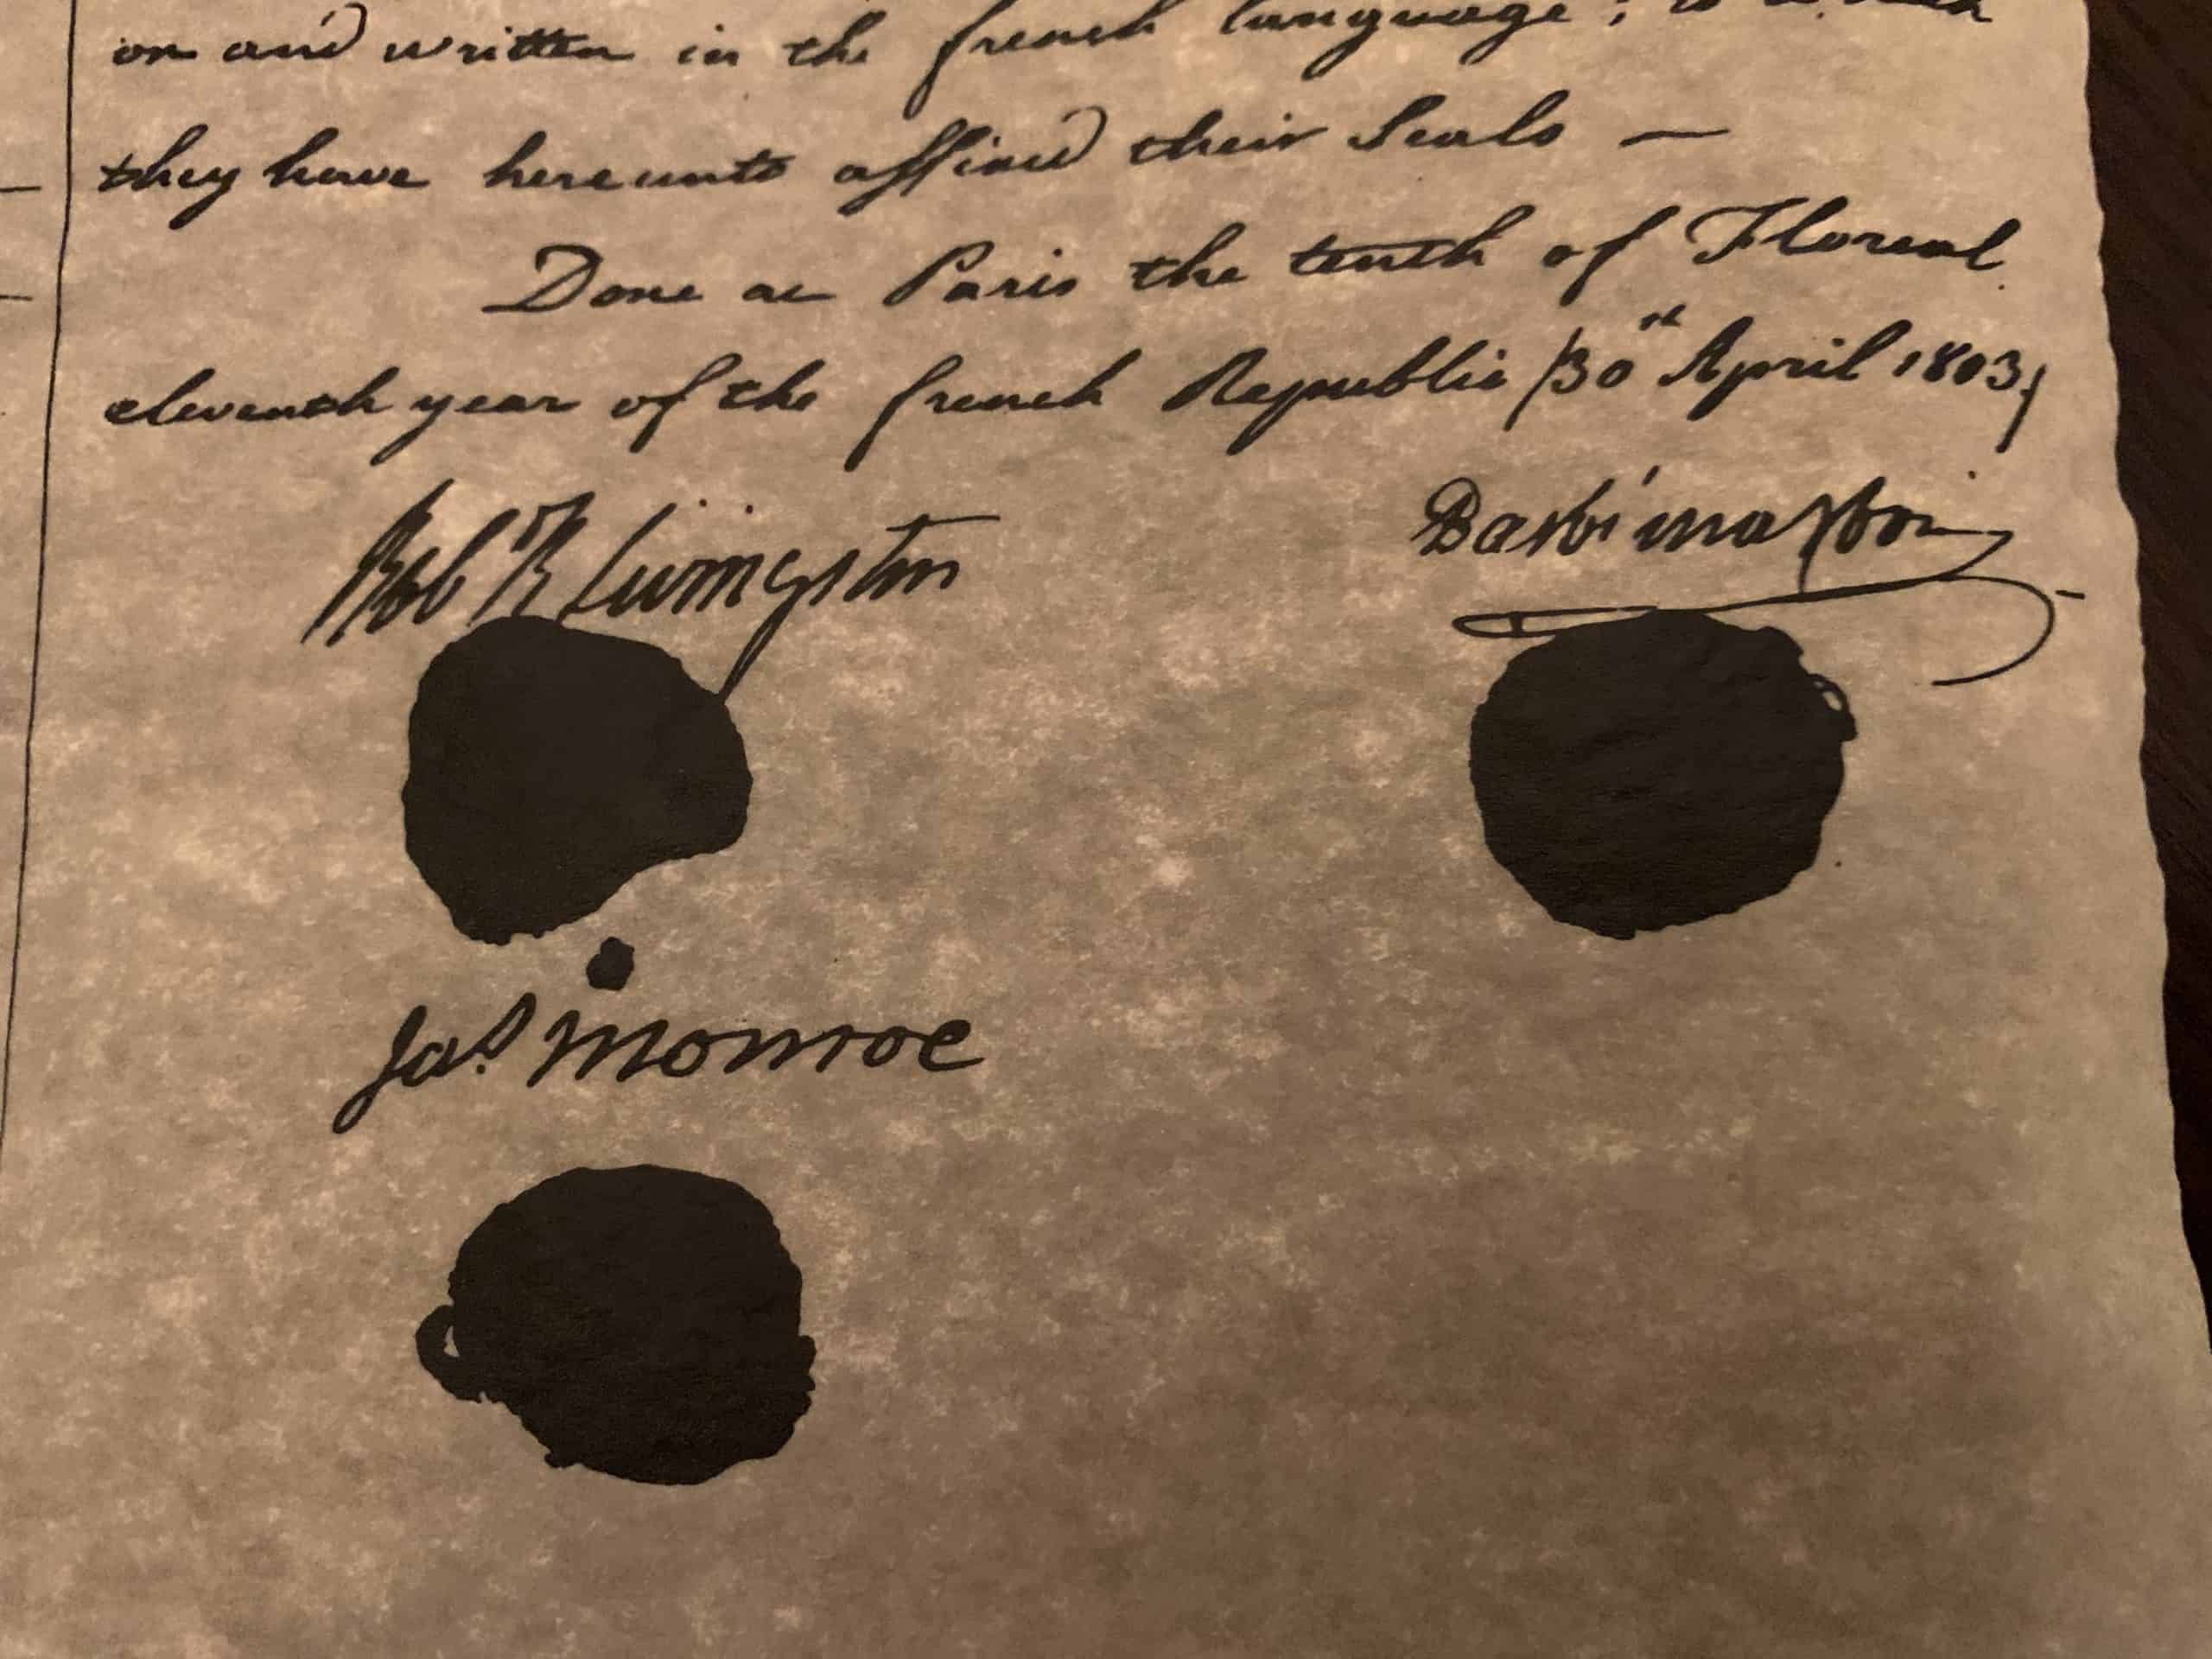 on and written in the french language; to which
they have hereunto affixed their Seals —
Done at Paris the tenth of Floreal
eleventh year of the french Republic /30th April 1803/
Rob R Livingston
Barbé Marbois
Jas Monroe